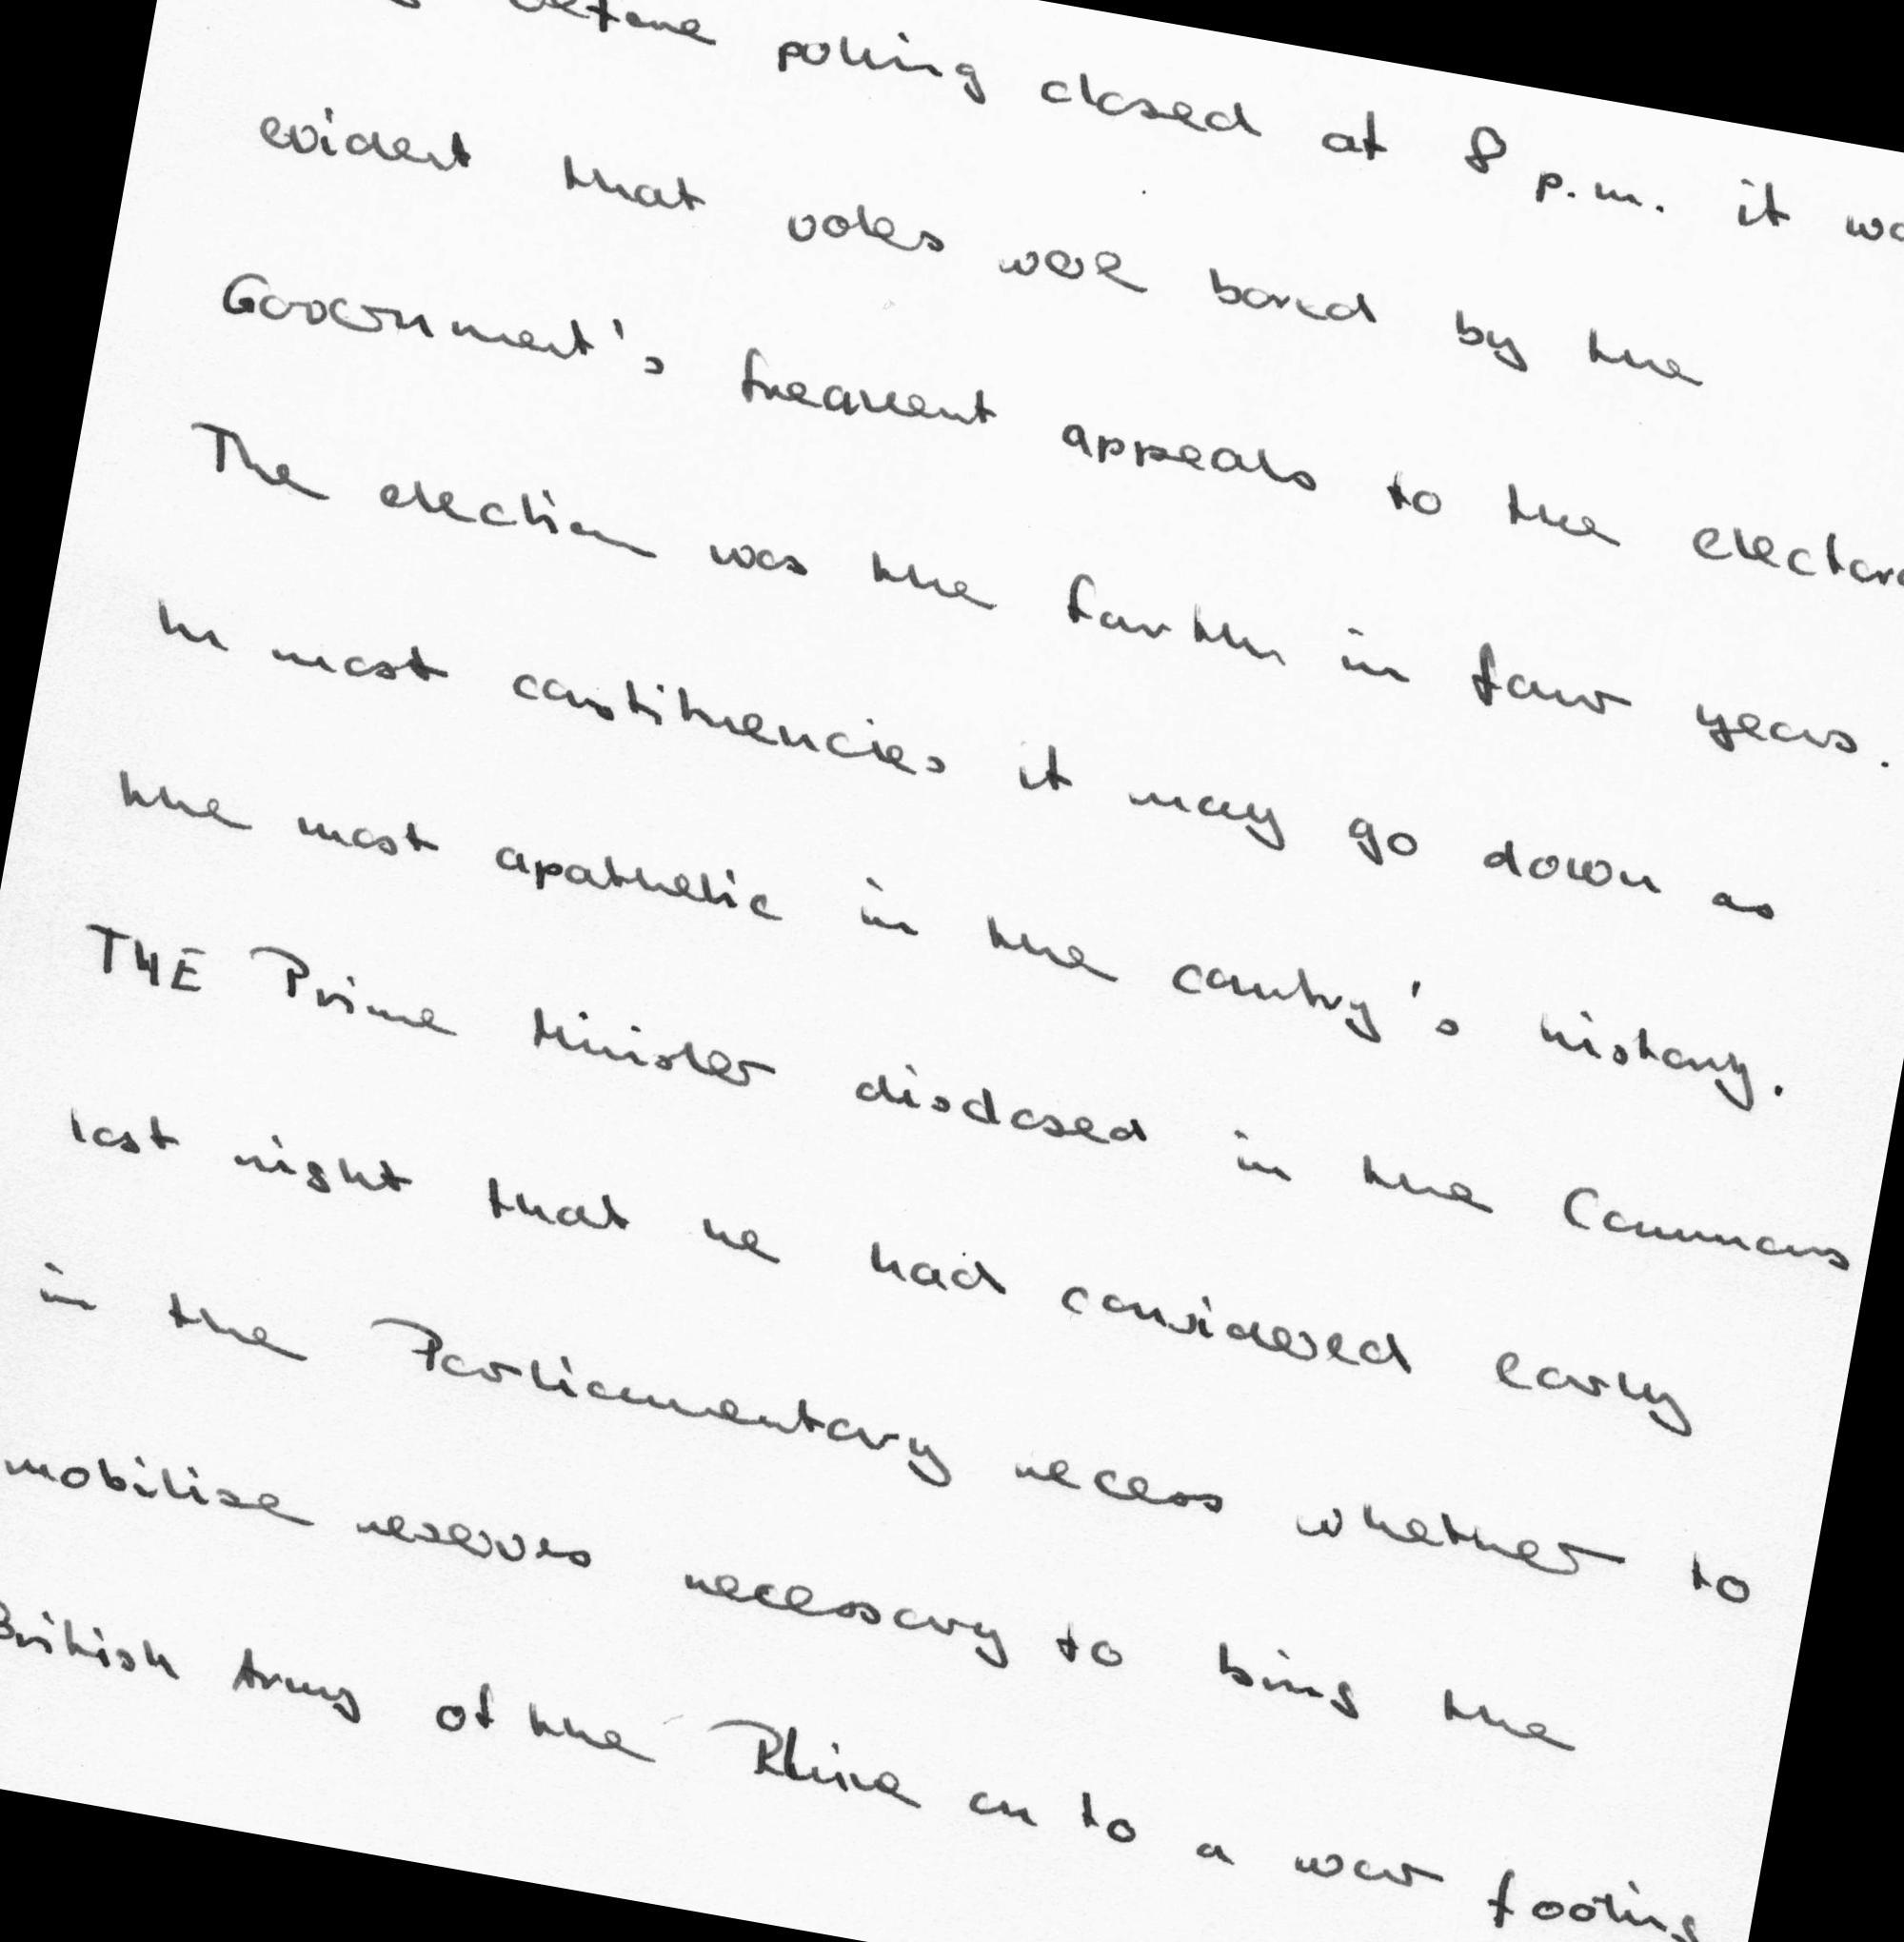 before polling closed at 8 p.m. it
evident that votes were bored by the
Government's frequent appeals to the
The election was the fourth in four years.
In most constituencies it may go down as
the most apathetic in the country's history.
THE Prime Minister disclosed in the Commons
last night that he had considered early
in the Parliamentary recess whether to
mobilise reserves necessary to bring the
British Army of the Rhine on to a war footing